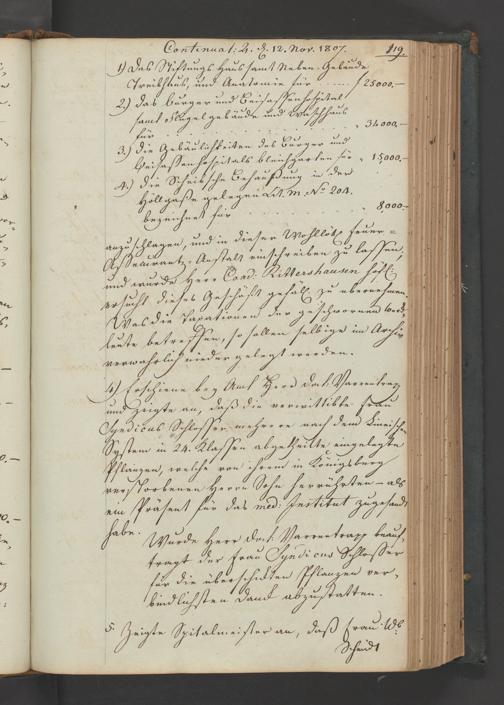 Continuat: 4. d. 12. Nov. 1807. 119.
1) das Stiftungs Haus samt Neben-Gebäude
Treibhaus, und Anatomie für .... f 25000,—
2) das Burger und Beisassenhospital
samt Flügelgebäude und Waschhaus
für . . . . . . . . „ 34000,—
3) die Gebäulichkeiten des Burger und
Beisassenhospitals bleichgarten für „ 15000,—
4) die Scheibsche Behaußung in der
Höllgaße gelegen Lit. M. No. 204.
bezeichnet für . . . . . 8,000—
anzuschlagen, und in dieser Wohllöbl. Feuer=
Assecuranz-Anstalt einschreiben zu lassen,
und wurde Herr Cond. Rittershausen höfl.
ersucht dieses Geschäft gefäll. zu übernehmen.
Was die Taxationen der geschwornen
leute betreffen, so sollen selbige im Archiv
verwahrlich nieder gelegt werden.
4) Erschiene bey Amt Herr doct. Varrentrapp
und zeigte an, daß die verwittibte Frau
Syndicus Schlosser mehrere nach dem Linneischen
System in 24. Klassen abgetheilte eingelegte
Pflanzen, welche von ihrem in Königsberg
verstorbenen Herrn Sohn herrührten — als
ein Präsent für das med: Institut zugesandt
habe.
Wurde Herr doct. Varrentrapp beauf,
tragt der Frau Syndicus Schlosser
für die überschickten Pflanzen ver,
bindlichsten Dank abzustatten.
5. Zeigte Spitalmeister an, daß Frau Wb.
Scheidt